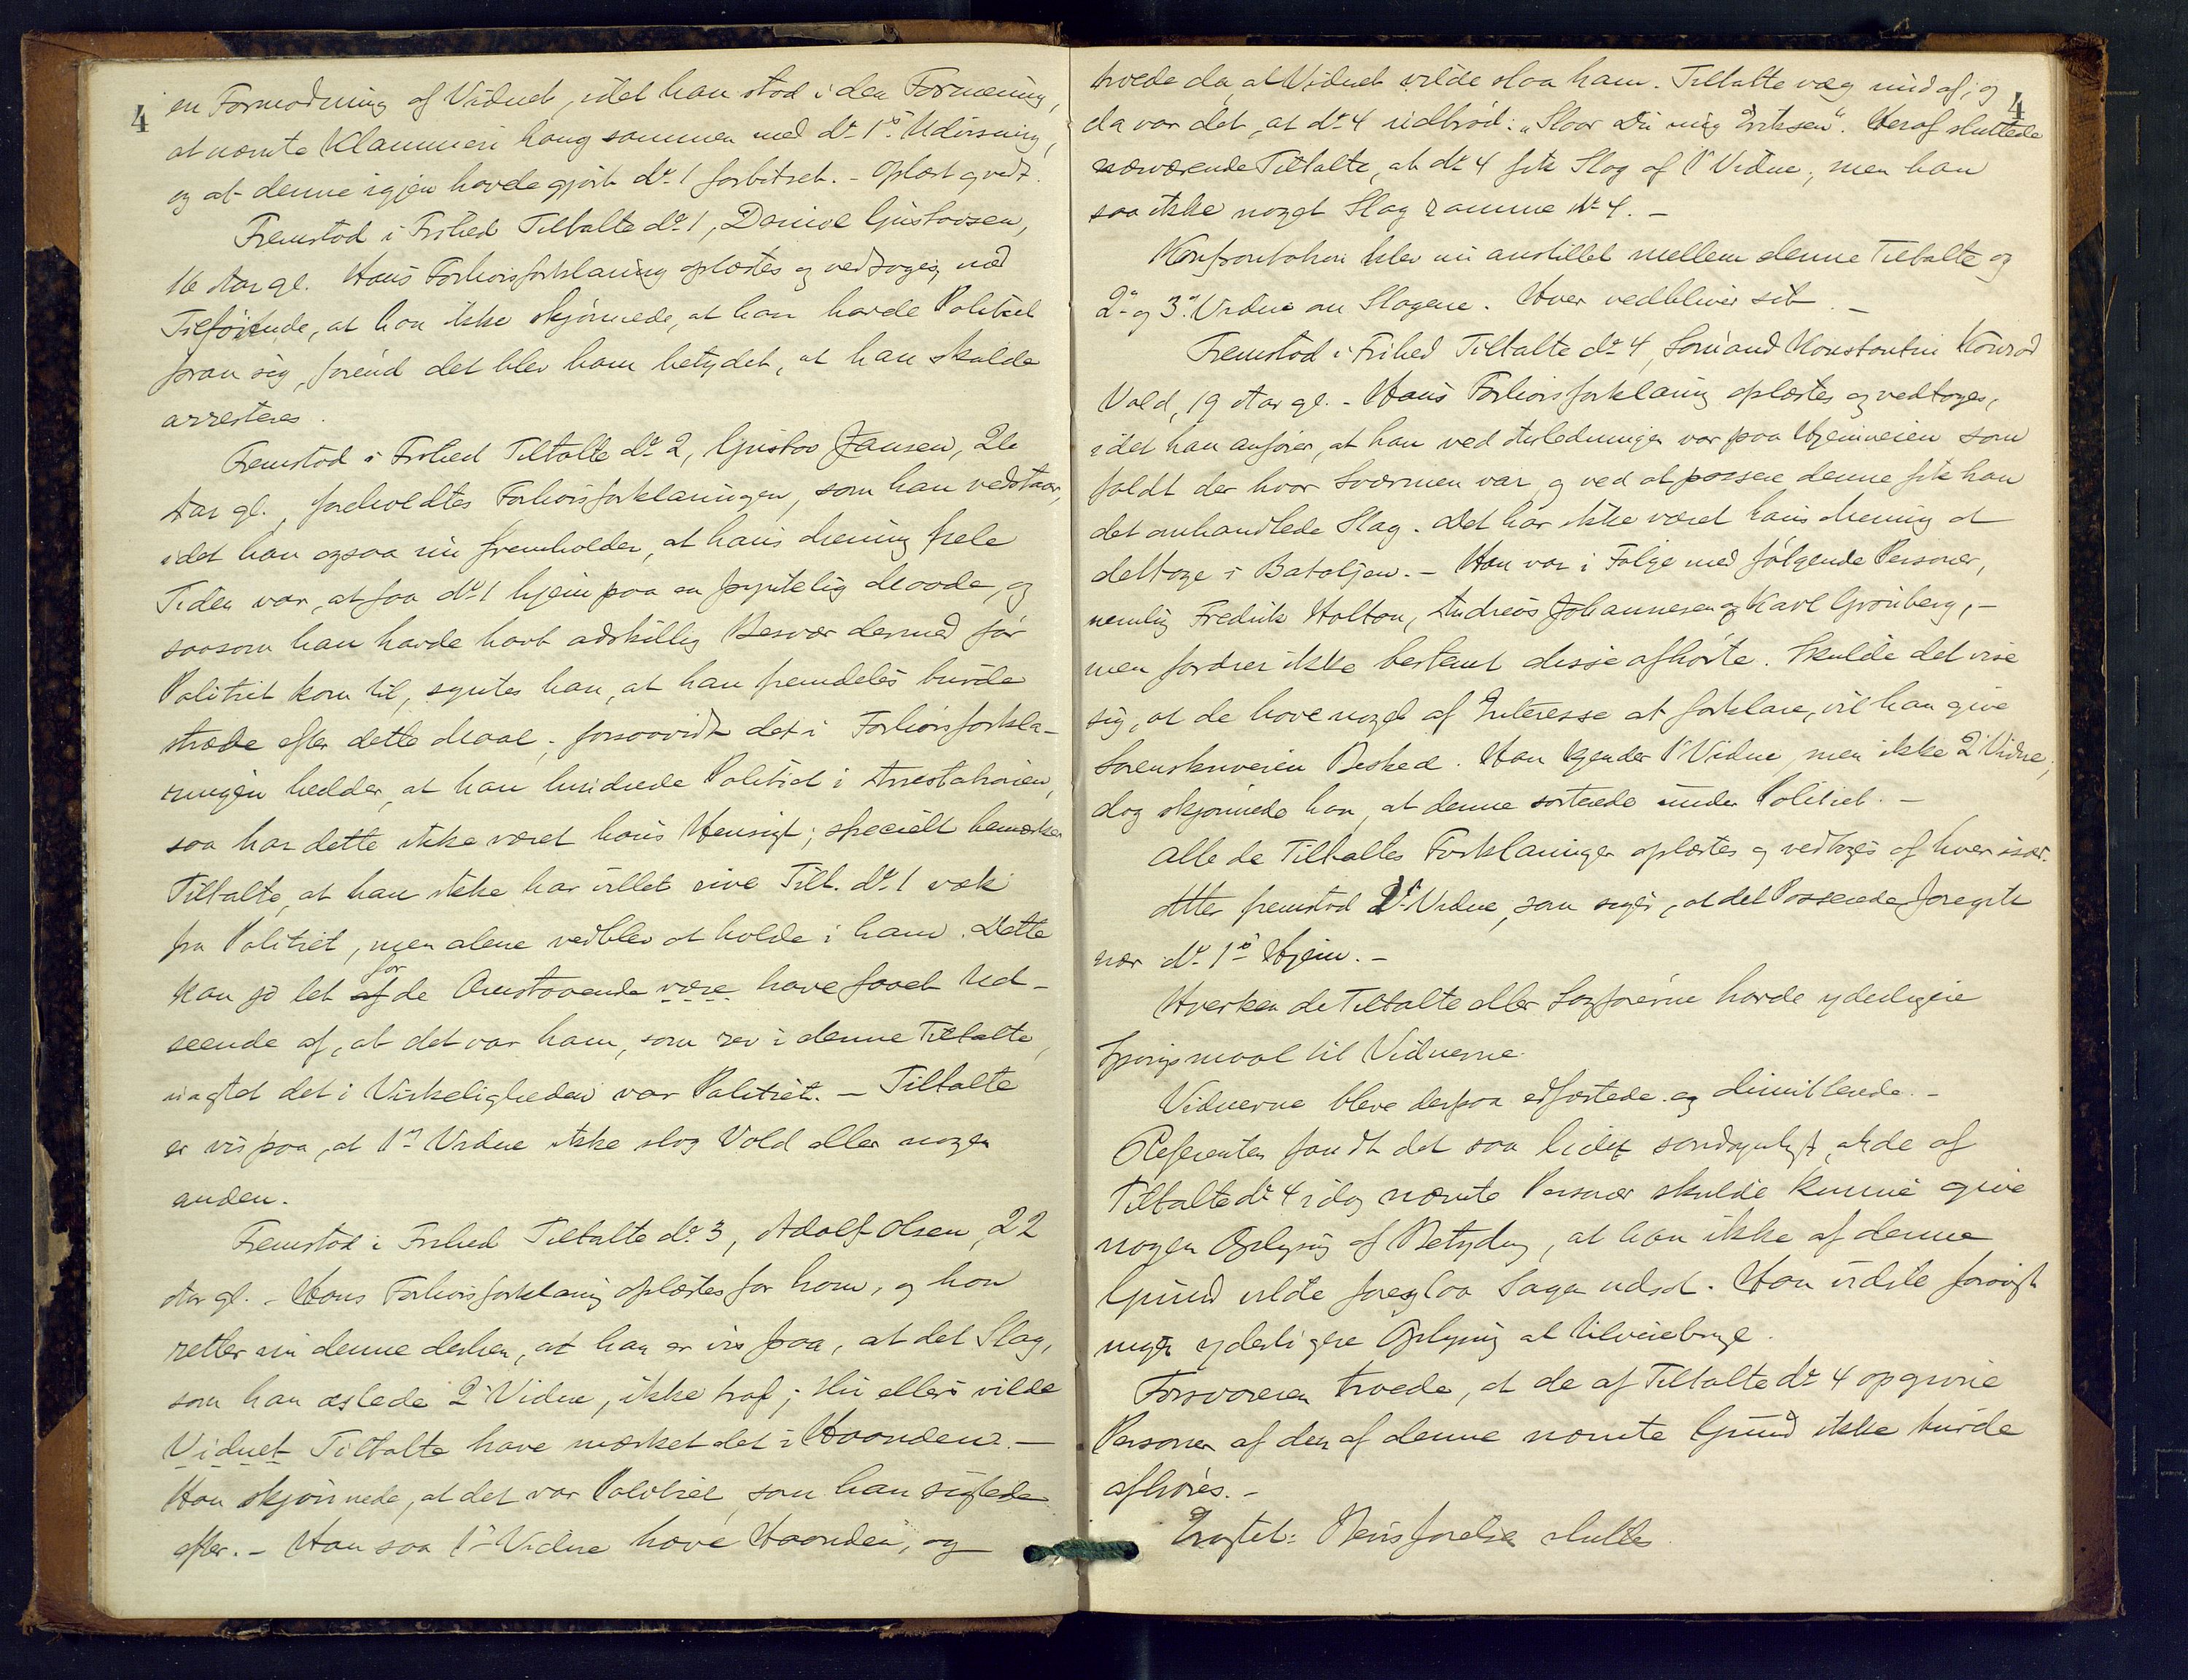 4
en Formodning af Vidnet, idet han stod i den Formening,
at nævnte Klammeri hang sammen med No 1s Udvisning,
og at denne igjen havde gjort No 1 forbitret. - Oplæst, vedt.
Fremstod i Frihed Tiltalte No 1, Daniel Gustavsen,
16 Aar gl. Hans Forhørsforklaring oplæstes og vedtoges, med
Tilføiende, at han ikke skjønnede, at han havde Politiet
foran sig, førend det blev ham betydet, at han skulde
arresteres.
Fremstod i Frihed Tiltalte No 2, Gustav Jansen, 26
Aar gl., foreholdtes Forhørsforklaringen, som han vedstaar,
idet han ogsaa nu fremholder, at hans Mening hele
Tiden var, at faa No 1 hjem paa en fyntelig Maade, og
saasom han havde havt adskillig Besvær dermed før
Politiet kom til, syntes han, at han fremdeles burde
stræbe efter dette Maal; forsaavidt det i Forhørsforkla-
ringen hedder, at han hindrede Politiet i Arrestationen,
saa har dette ikke været hans Hensigt; specielt bemærker
Tiltalte, at han ikke har villet rive Tilt. No 1 væk
fra Politiet, men alene vedblev at holde i ham. Dette
kan jo let af for de Omstaaende være have faaet Ud-
seende af, at det var ham, som rev i denne Tiltalte,
uagtet det i Virkeligheden var Politiet. - Tiltalte
er vis paa, at 1ste Vidne ikke slog Vold eller nogen
anden.
Fremstod i Frihed Tiltalte No 3, Adolf Olsen, 22
Aar gl. - Hans Forhørsforklaring oplæstes for ham, og han
retter nu denne derhen, at han er vis paa, at det Slag,
som han aslede 2det Vidne, ikke traf; thi ellers vilde
Vidnet Tiltalte have mærket det i Haanden. -
Han skjønnede, at det var Politiet, som han sigtede
efter. - Han saa 1ste Vidne hæve Haanden, og
4
troede da, at Vidnet vilde slaa ham. Tiltalte veg undaf, og
da var det, at No 4 udbrød: "Slaar Du mig Eriksen". Heraf sluttede
nærværende Tiltalte, at No 4 fik Slag af 1ste Vidne, men han
saa ikke noget Slag ramme No 4. -
Konfrontation blev nu anstillet mellem denne Tiltalte og
2det og 3die Vidne om Slagene. Hver vedbliver sit. -
Fremstod i Frihed Tiltalte No 4, Sømand Konstantin Konrad
Vold, 19 Aar gl. - Hans Forhørsforklaring oplæstes og vedtoges,
idet han anfører, at han ved Anledningen var paa Hjemveien som
faldt der hvor Sværmen var, og ved at passere denne fik han
det omhandlede Slag. Det har ikke været hans Mening at
deltage i Bataljen. - Han var i Følge med følgende Personer,
nemlig Fredrik Holton, Andreas Johannesen og Karl Grønberg, -
men fordrer ikke bestemt disse afhørte. Skulde det vise
sig, at de have noget af Interesse at forklare, vil han give
Sorenskriveren Besked. Han kjender 1ste Vidne, men ikke 2det Vidne;
dog skjønnede han, at denne sorterede under Politiet. -
Alle de Tiltaltes Forklaringer oplæstes og vedtoges af hver især.
Atter fremstod Vidne, som siger, at det Passerede foregik
nær No 1s Hjem. -
Hverken de Tiltalte eller Sagførerne havde yderligere
Spørgsmaal til Vidnerne.
Vidnerne bleve derpaa edfæstede og dimitterede. -
Referenten fandt det saa lidet sandsynligt, at de af
Tiltalte No 4 idag nævnte Personer skulde kunne give
nogen Oplysning af Betydning, at han ikke af denne
Grund vilde foreslaa Sagen udsat. Han vidste forøvrigt
ingen yderligere Oplysning at tilveiebringe.
Forsvareren troede, at de af Tiltalte No 4 opgivne
Personer af den af denne nævnte Grund ikke burde
afhøres. -
Eragtet: Bevisførelsen sluttes